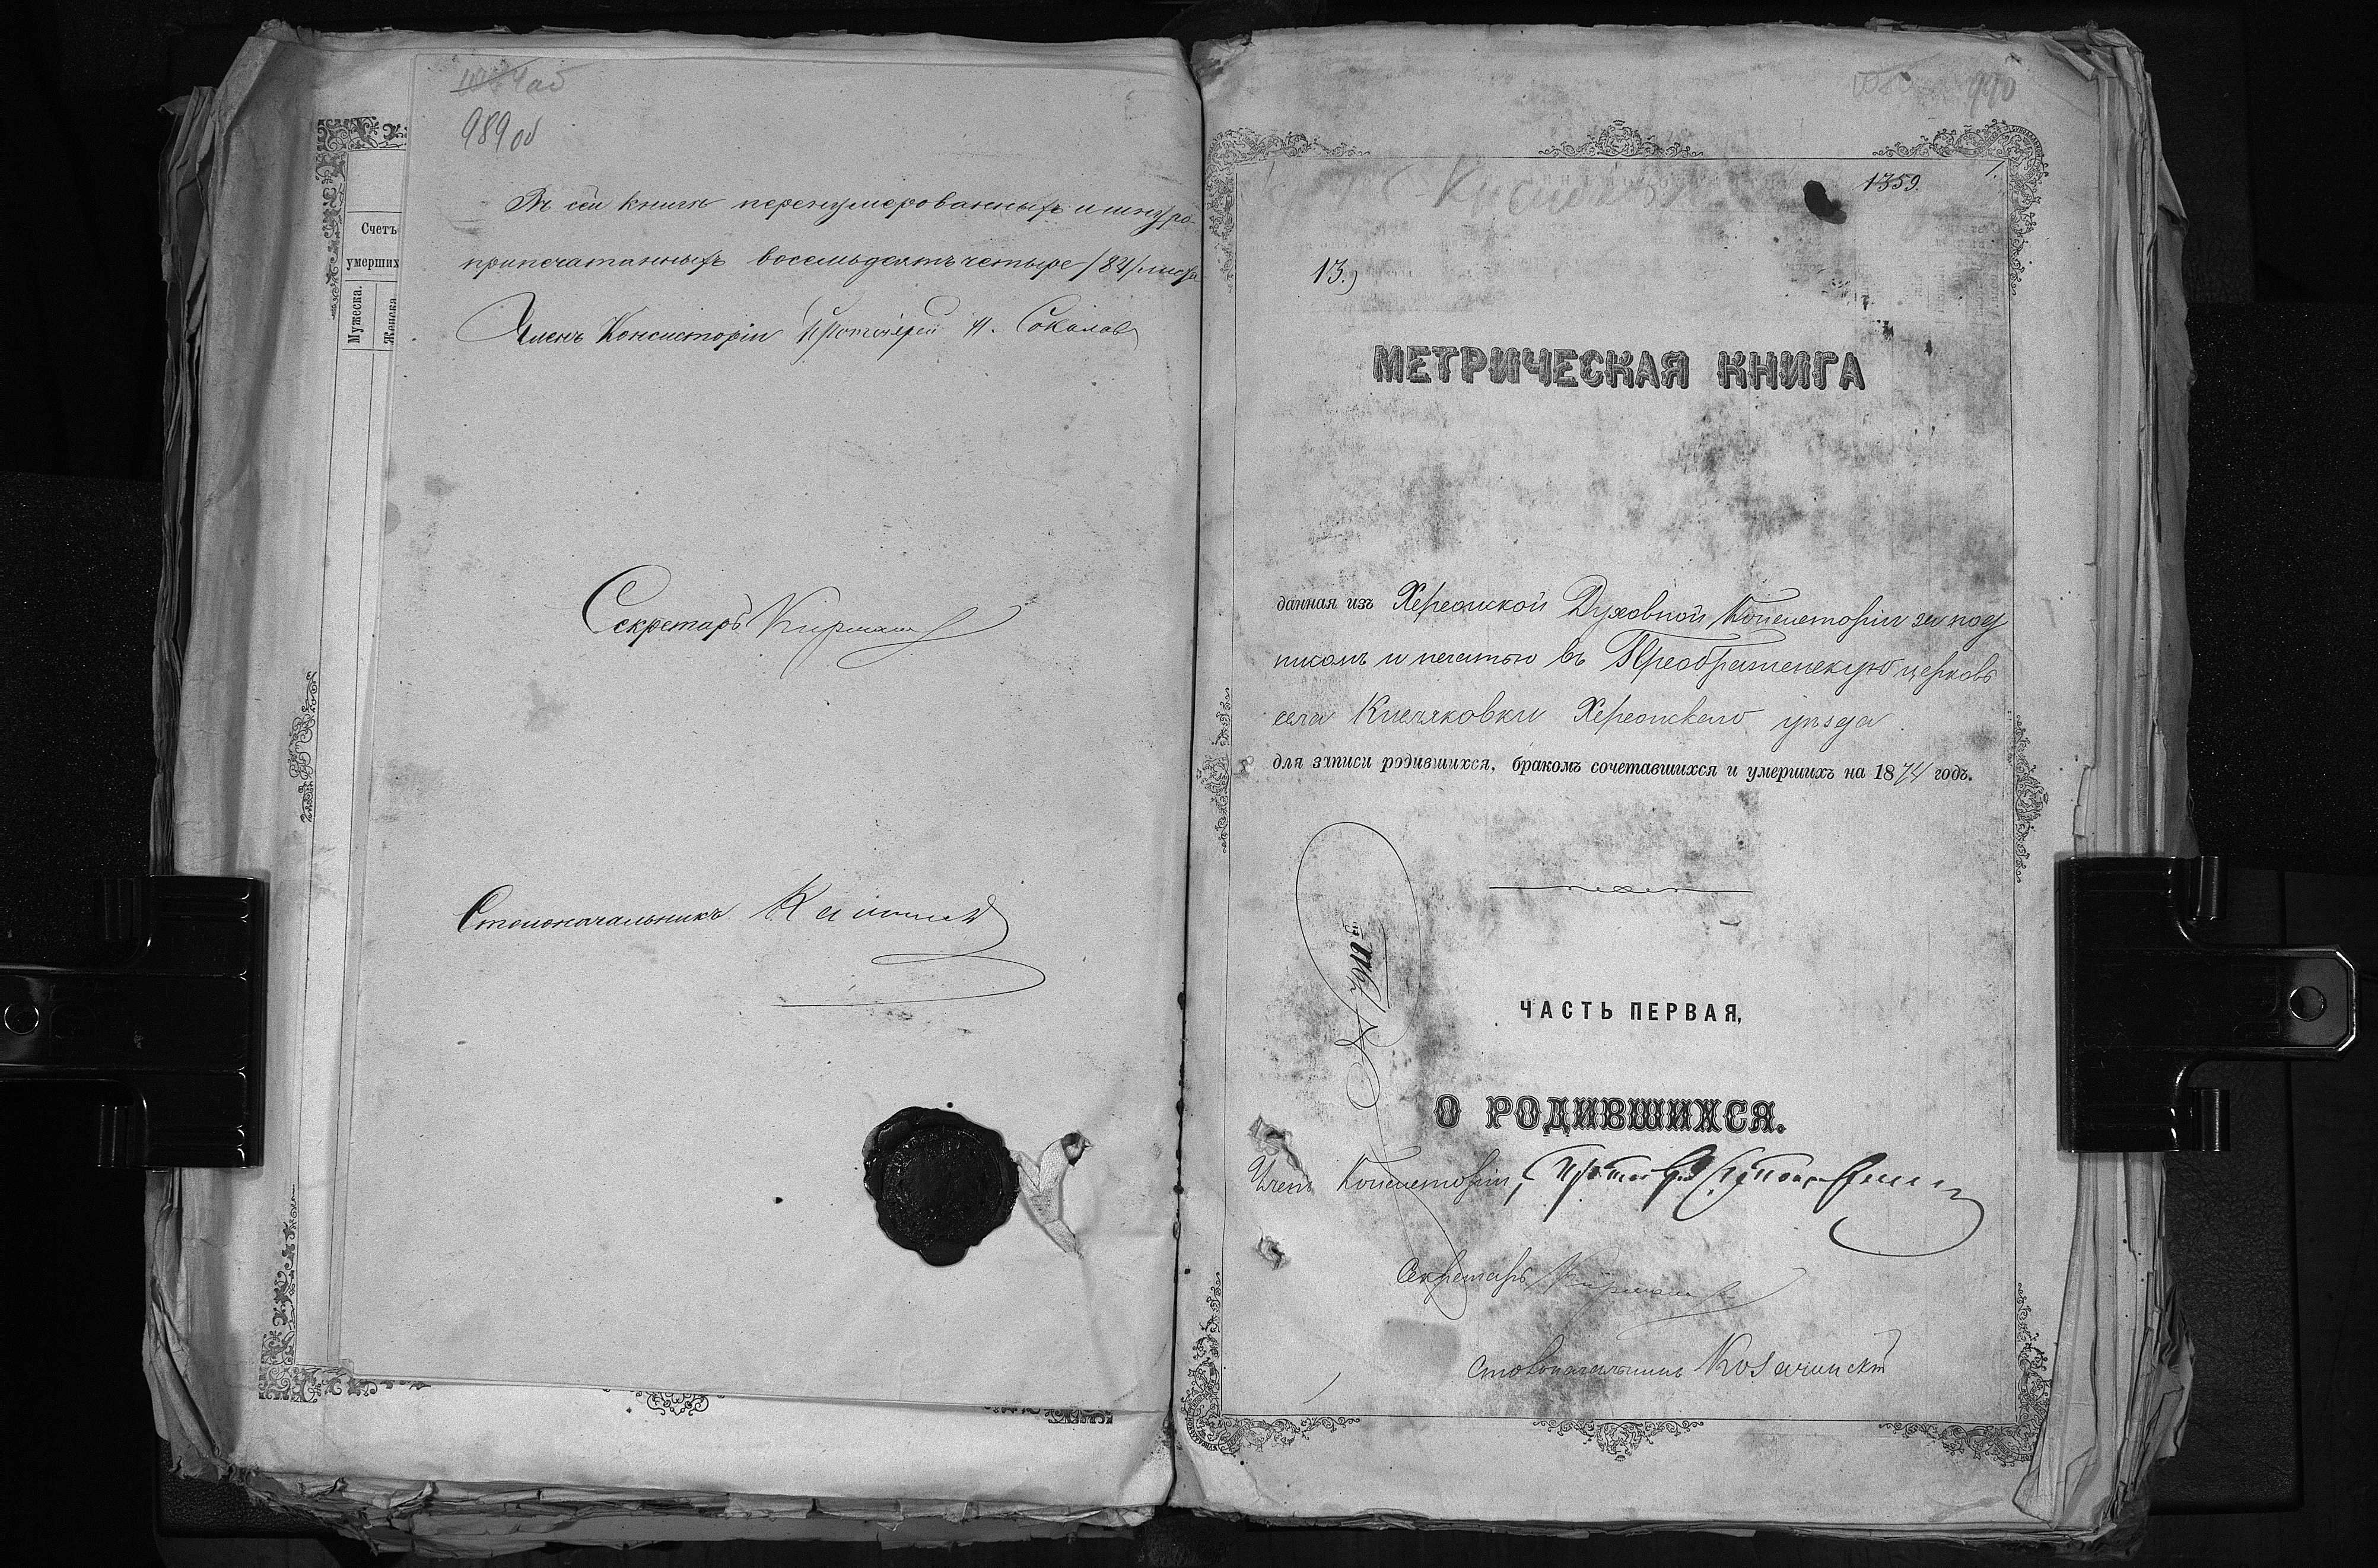 989 об
Счетъ
умерших
Мужеска.
Женска
Въ сей книгѣ перенумерованныхъ и шнуро-
припечатанныхъ восемьдесятъ четыре /84/ листа
Членъ Консисторіи Протоіерей Соколовъ
Секретарь
Столоначальникъ
990
1359.
13.)
МЕТРИЧЕСКАЯ КНИГА
данная изъ Херсонской Духовной Консисторіи за под
писомъ и печатью въ Преображенскую церковь
села Кисляковки Херсонскаго уѣзда.
для записи родившихся, бракомъ сочетавшихся и умершихъ на 1874 годъ.
ЧАСТЬ ПЕРВАЯ,
О РОДИВШИХСЯ.
Членъ Консисторіи,
Секретарь
Столоначальникъ